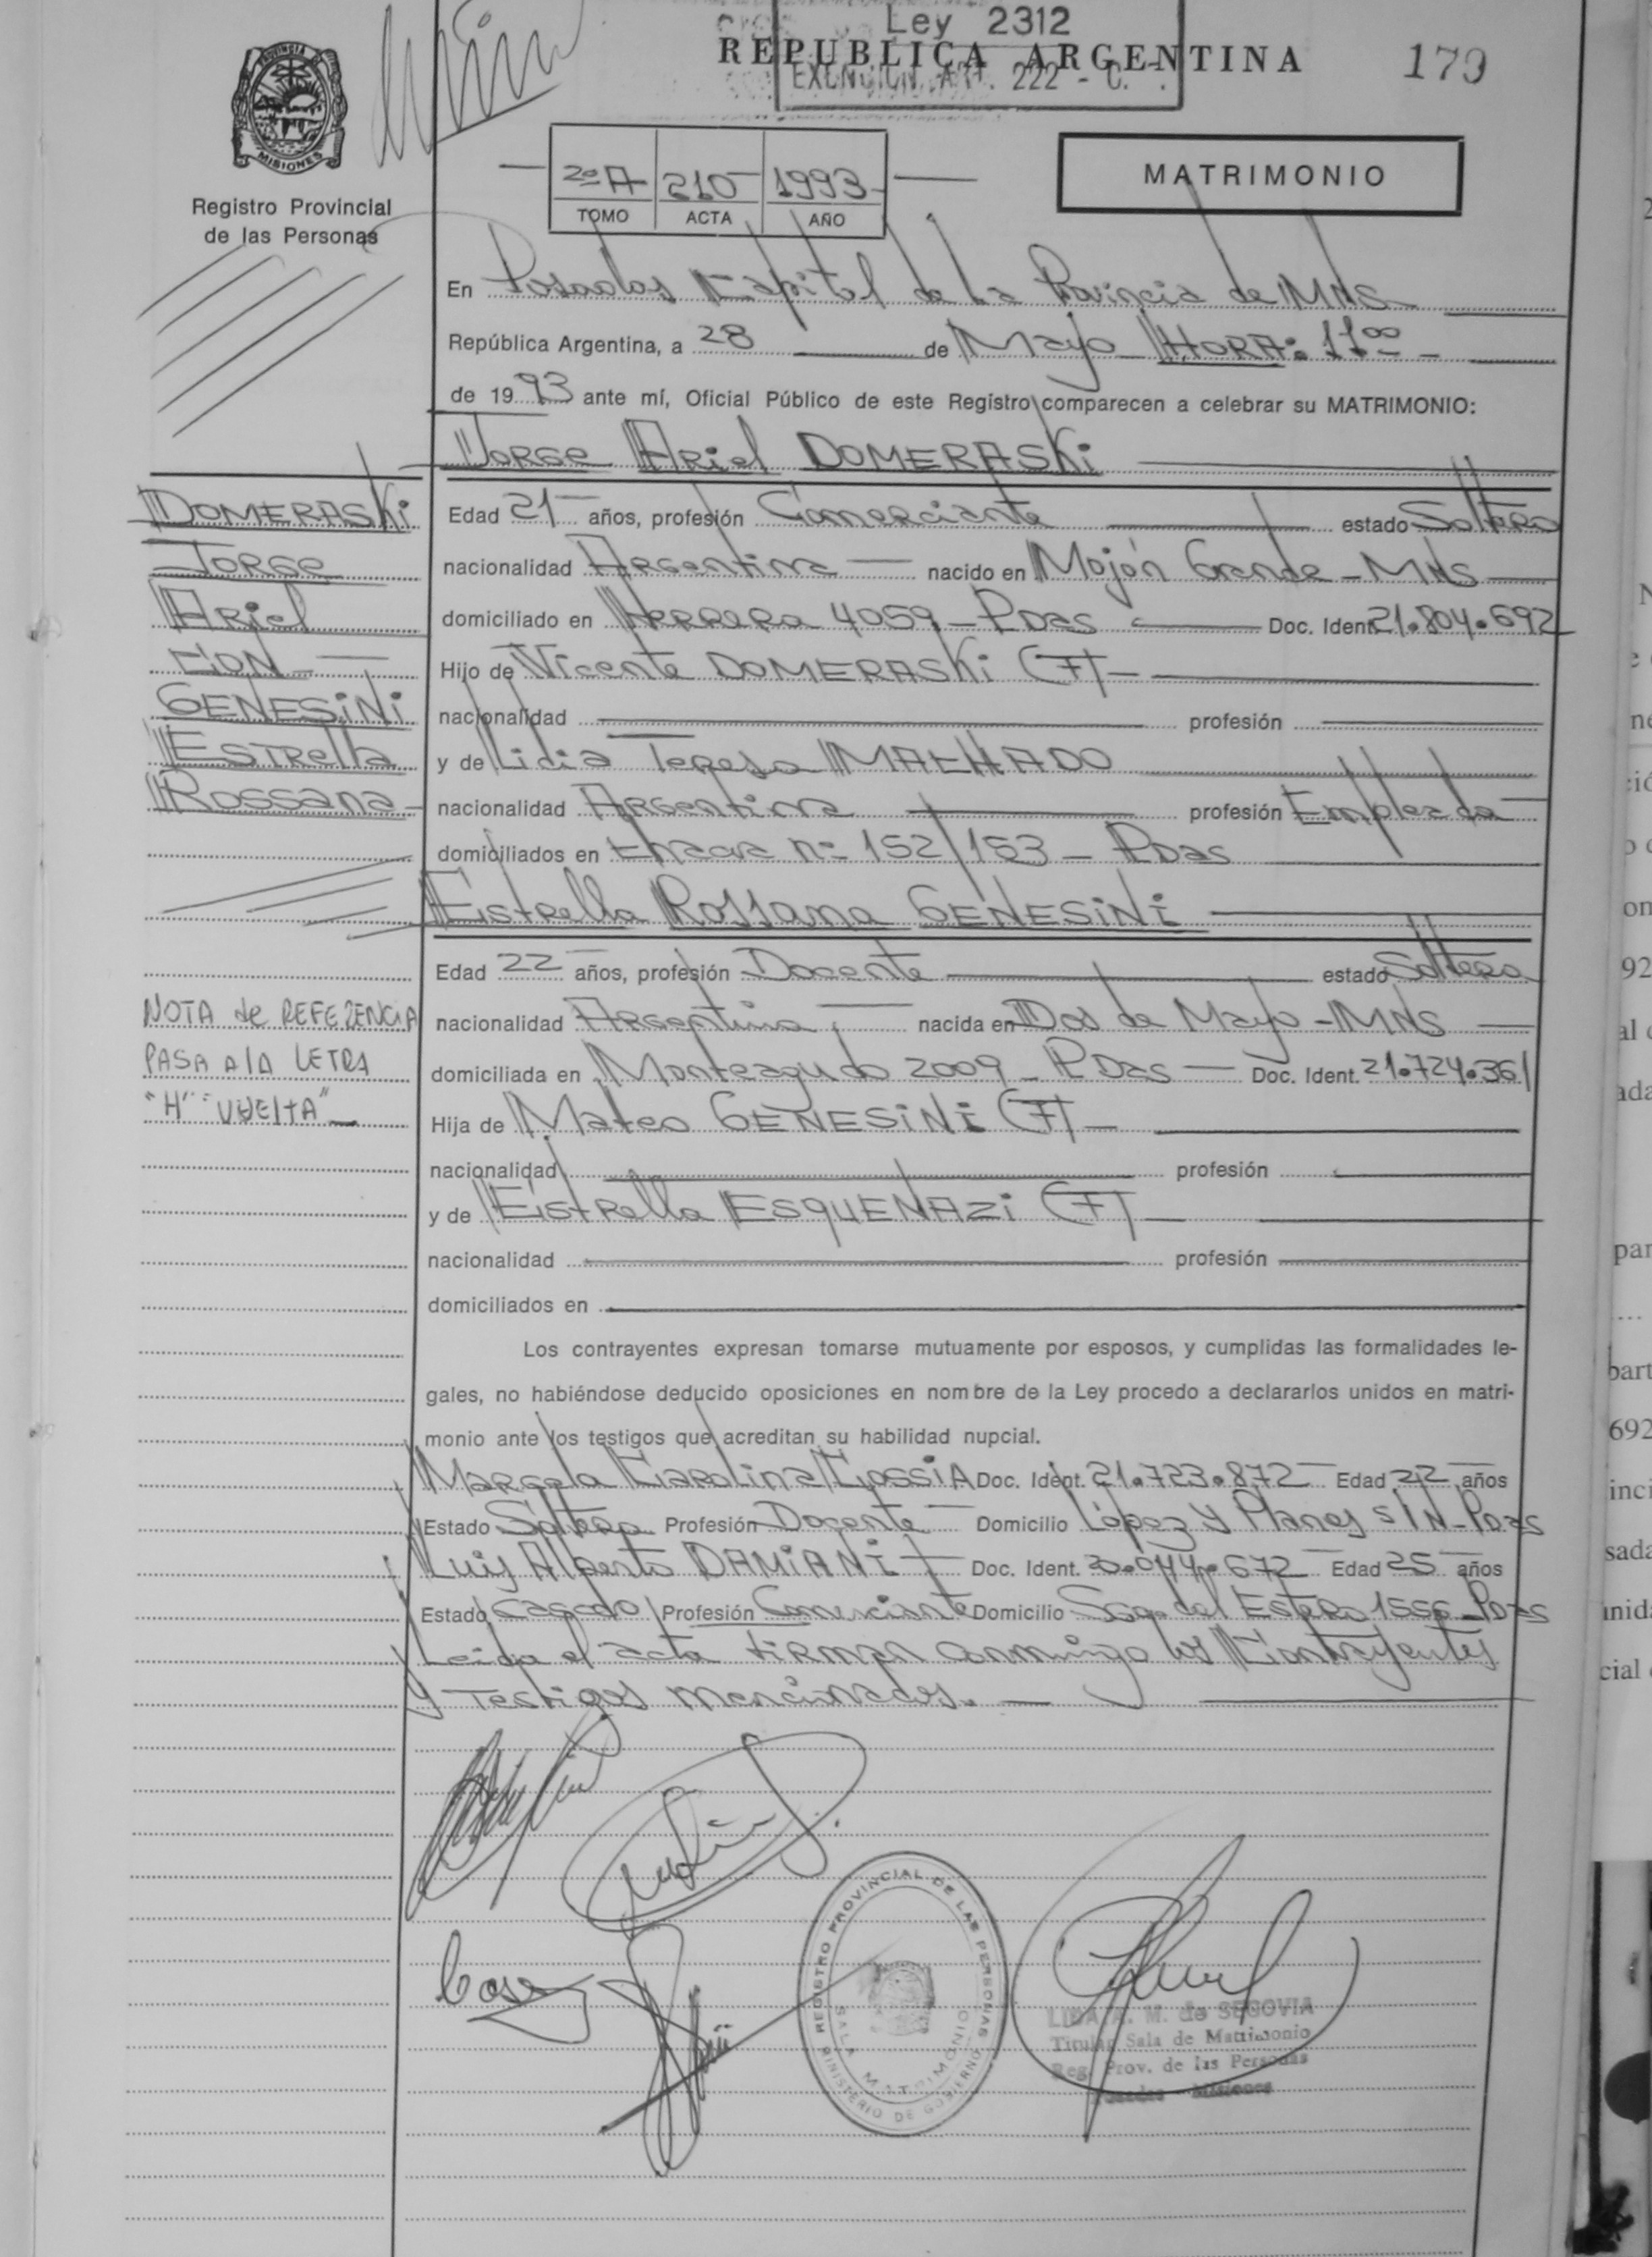 Ley 2312
REPUBLICA ARGENTINA
EXENCION ART. 222 - C.
179
MISIONES
Registro Provincial
de las Personas
2º A 210 1993
TOMO ACTA AÑO
MATRIMONIO
En Posadas Capital de La Provincia de MNS
República Argentina, a 28 de Mayo HORA: 11 00
de 1993 ante mí, Oficial Público de este Registro comparecen a celebrar su MATRIMONIO:
Jorge Ariel DOMERASKi
DOMERASKi
Jorge
Ariel
CON
GENESiNi
Estrella
Rossana
Edad 21 años, profesión Comerciante estado Soltero
nacionalidad Argentina nacido en Mojón Grande - MNS
domiciliado en Herrera 4059 - Pdas Doc. Ident. 21.804.692
Hijo de Vicente DOMERASKi (F)
nacionalidad profesión
y de Lidia Teresa MACHADO
nacionalidad Argentina profesión Empleada
domiciliados en Chacra nº 152/153 - Pdas
Estrella Rossana GENESiNi
Edad 22 años, profesión Docente estado Soltera
nacionalidad Argentina nacida en Dos de Mayo - MNS
domiciliada en Monteagudo 2009 - Pdas Doc. Ident. 21.724.361
Hija de Mateo GENESiNi (F)
nacionalidad profesión
y de Estrella ESQUENAZi (F)
nacionalidad profesión
domiciliados en
NOTA de REFERENCIA
PASA A LA LETRA
"H" VUELTA"
Los contrayentes expresan tomarse mutuamente por esposos, y cumplidas las formalidades le-
gales, no habiéndose deducido oposiciones en nombre de la Ley procedo a declararlos unidos en matri-
monio ante los testigos que acreditan su habilidad nupcial.
Marcela Carolina COSSiA Doc. Ident. 21.723.872 Edad 22 años
Estado Soltera Profesión Docente Domicilio López y Planes s/N - Pdas
Luis Alberto DAMiANi Doc. Ident. 20.044.672 Edad 25 años
Estado Casado Profesión Comerciante Domicilio Sgo. del Estero 1566 - Pdas
Leida el acta firman conmigo los Contrayentes
y Testigos mencionados.
REGISTRO PROVINCIAL DE LAS PERSONAS
SALA MATRIMONIO
MINISTERIO DE GOBIERNO
LIDA A. M. de SEGOVIA
Titular Sala de Matrimonio
Reg. Prov. de las Personas
Posadas Misiones